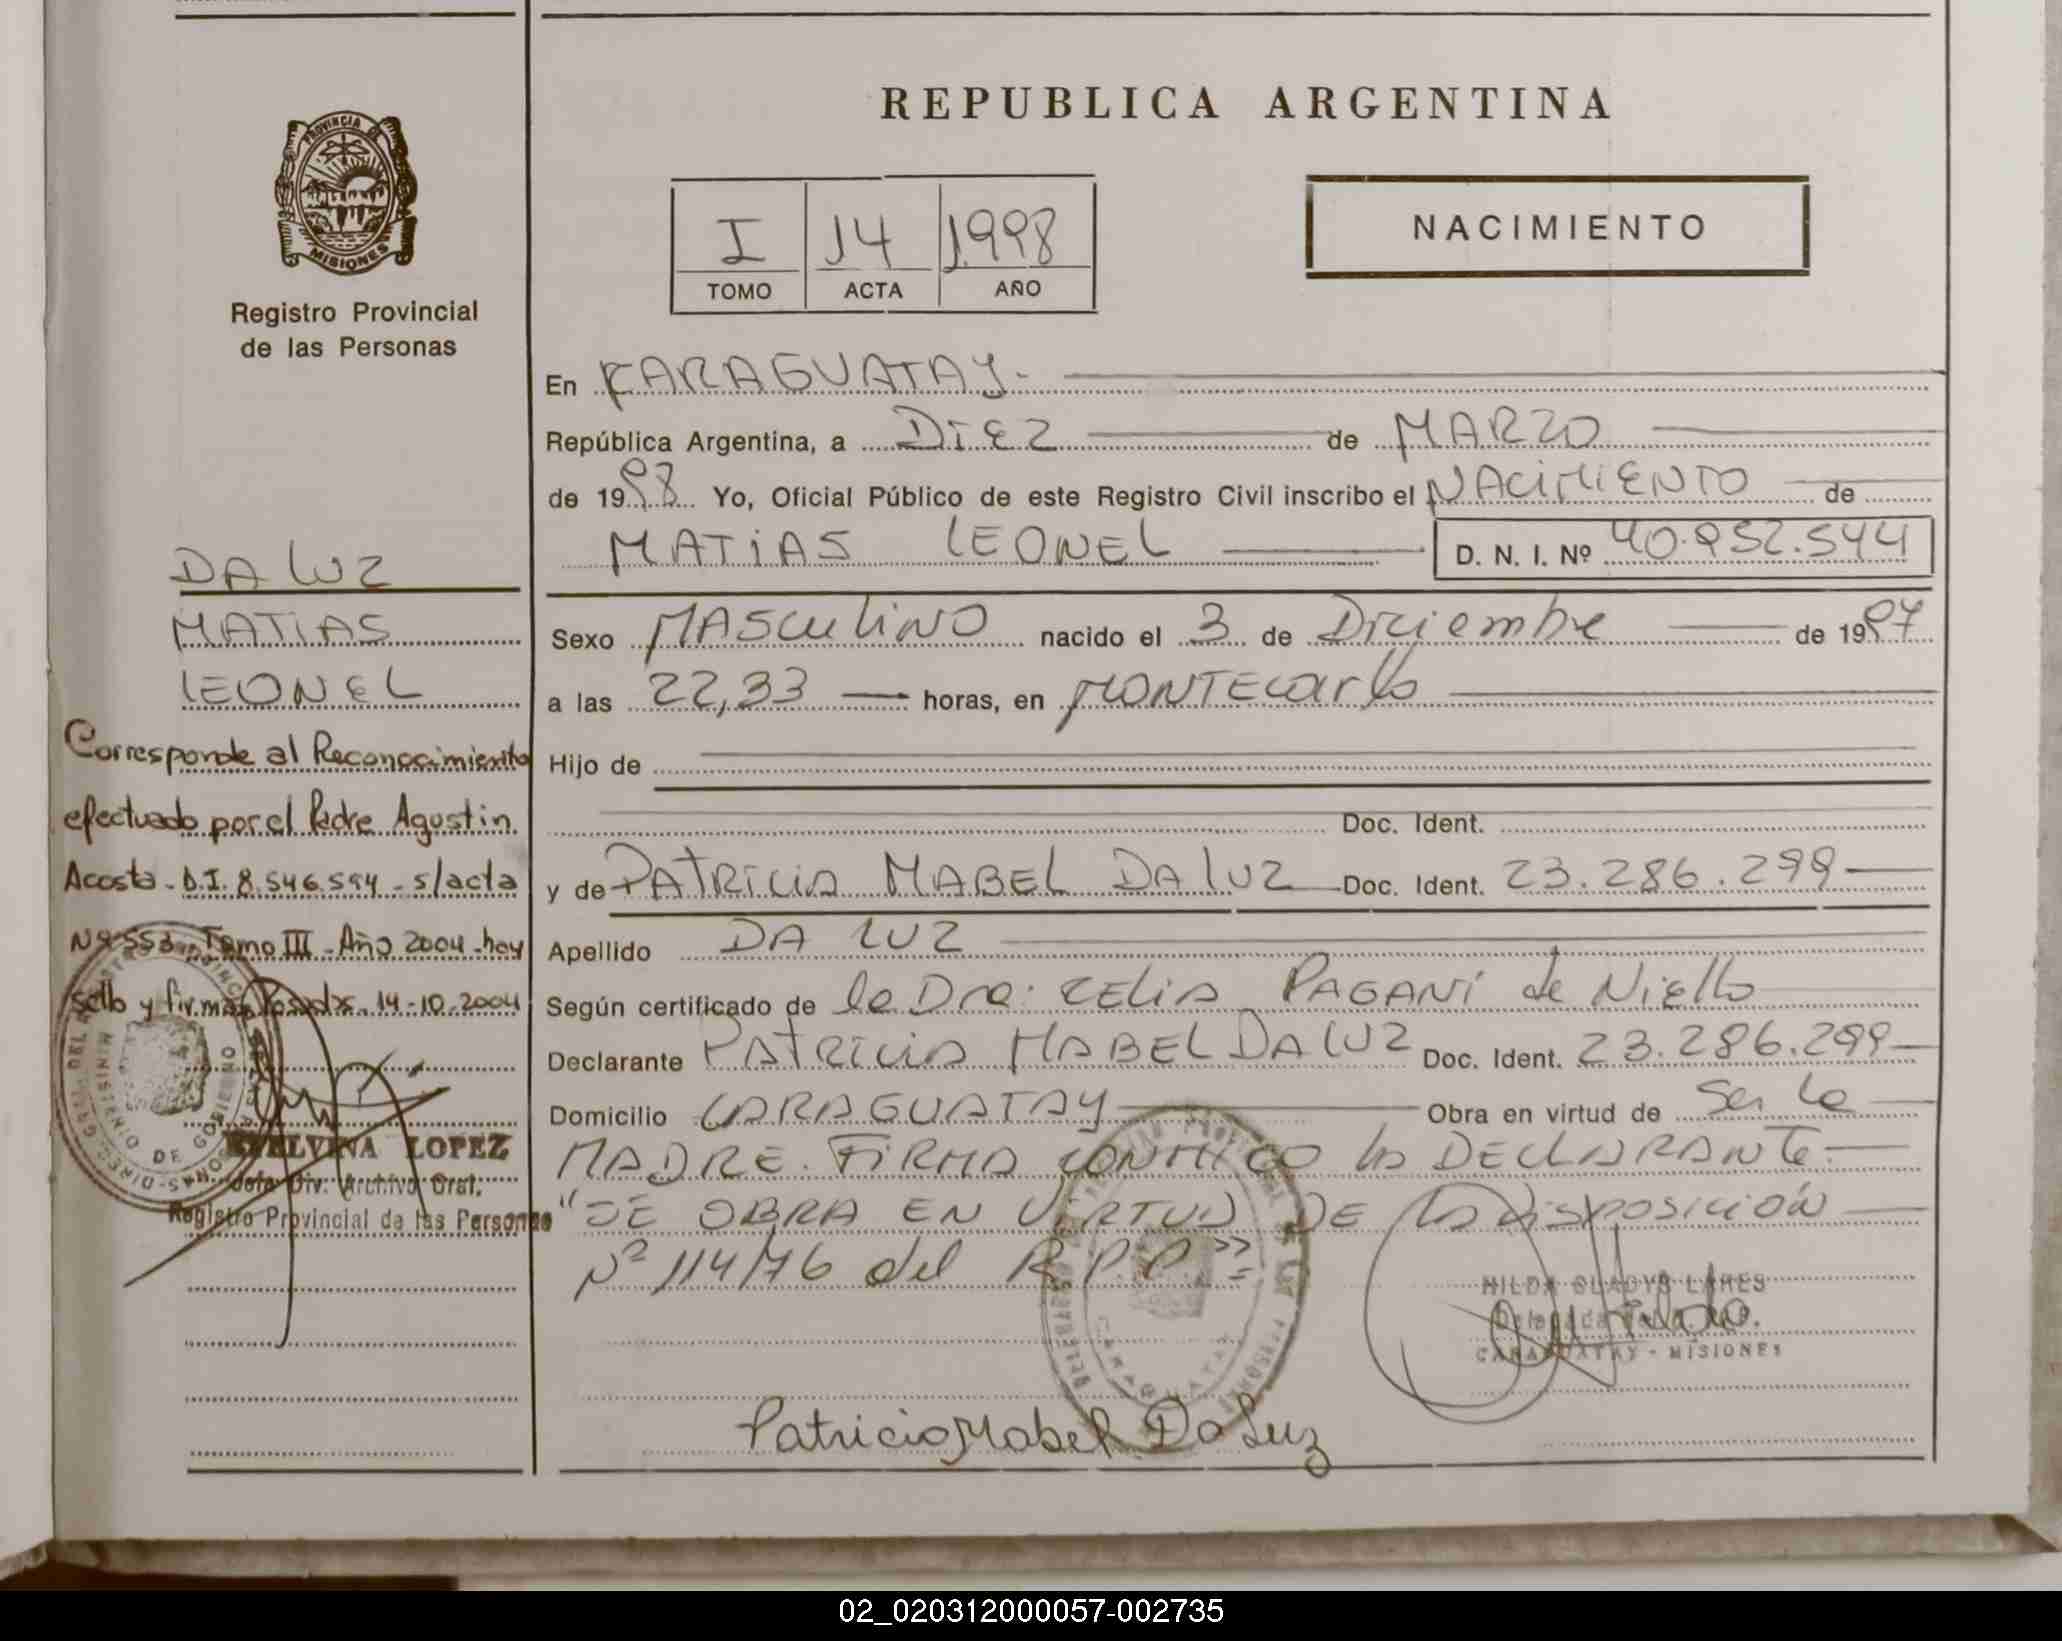 REPUBLICA ARGENTINA
PROVINCIA DE
MISIONES
Registro Provincial
de las Personas
I 14 1998
TOMO ACTA AÑO
NACIMIENTO
En CARAGUATAY.
República Argentina, a DIEZ de MARZO
de 1998 Yo, Oficial Público de este Registro Civil inscribo el NACIMIENTO de
MATIAS LEONEL D. N. I. Nº 40.952.544
Sexo MASCULINO nacido el 3 de Diciembre de 1997
a las 22,33 horas, en MONTECARLO
Hijo de
Doc. Ident.
y de PATRICIA MABEL DA LUZ Doc. Ident. 23.286.299
Apellido DA LUZ
Según certificado de la Dra: CELIA PAGANI de Niello
Declarante PATRICIA MABEL DA LUZ Doc. Ident. 23.286.299
Domicilio CARAGUATAY Obra en virtud de Ser La
MADRE. FIRMA CONMIGO la DECLARANTE.
"SE OBRA EN VIRTUD DE la DISPOSICIÓN
Nº 114/76 del R.P.P."
HILDA GLADYS LARES
Delegada
CARAGUATAY - MISIONES
Patricia Mabel Da Luz
DA LUZ
MATIAS
LEONEL
Corresponde al Reconocimiento
efectuado por el Padre Agustin
Acosta - D.I. 8.546.594 - s/acta
Nº 553 - Tomo III - Año 2004 - hoy
sello y firma Posadas. 14-10-2004
ELVINA LOPEZ
Jefe Div. Archivo Gral.
Registro Provincial de las Personas
02_020312000057-002735